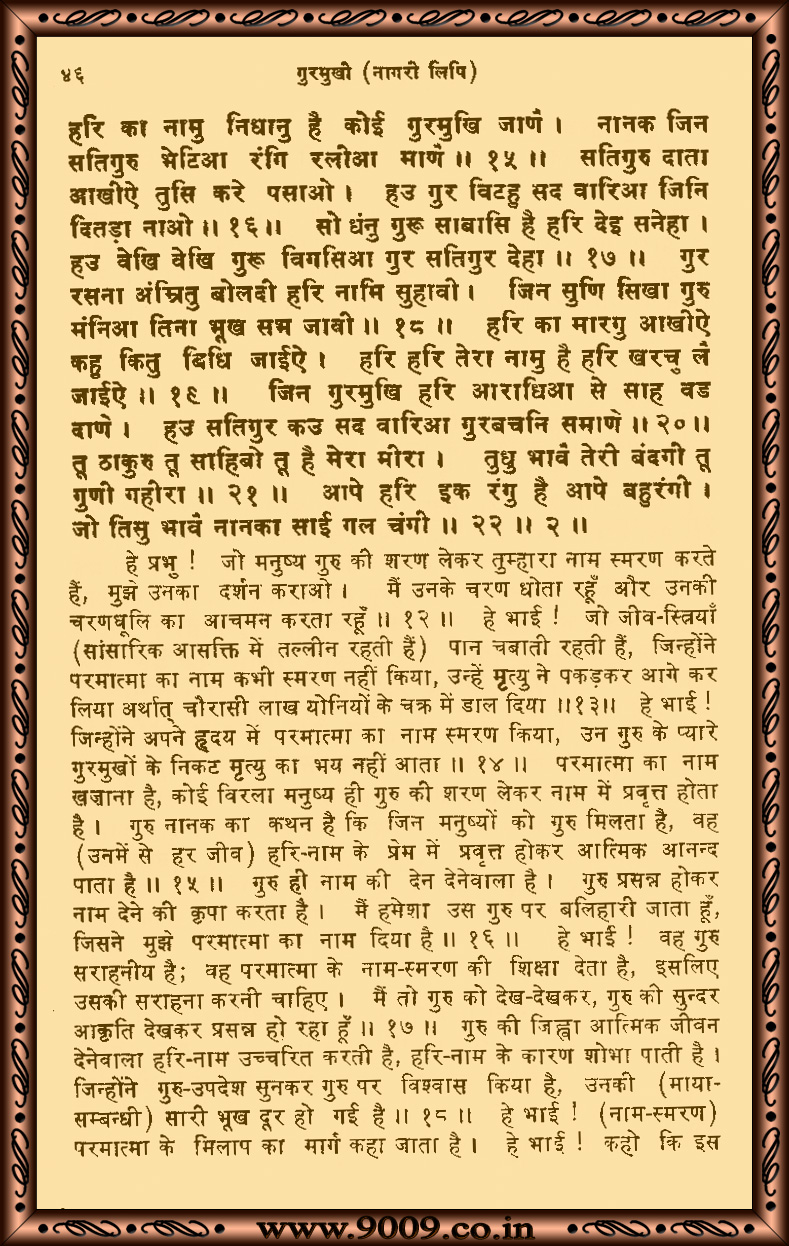 ४६ गुरमुखी (नागरी लिपि)
हरि का नामु निधानु है कोई गुरमुखि जाणै । नानक जिन
सतिगुरु भेटिआ रंगि रलीआ माणै ॥ १५ ॥ सतिगुरु दाता
आखीऐ तुसि करे पसाओ । हउ गुर विटहु सद वारिआ जिनि
दितड़ा नाओ ॥ १६ ॥ सो धंनु गुरू साबासि है हरि देइ सनेहा ।
हउ वेखि वेखि गुरू विगसिआ गुर सतिगुर देहा ॥ १७ ॥ गुर
रसना अंम्रितु बोलदी हरि नामि सुहावी । जिन सुणि सिखा गुरु
मंनिआ तिना भूख सभ जावी ॥ १८ ॥ हरि का मारगु आखीऐ
कहु कितु बिधि जाईऐ । हरि हरि तेरा नामु है हरि खरचु लै
जाईऐ ॥ १९ ॥ जिन गुरमुखि हरि आराधिआ से साह वड
दाणे । हउ सतिगुर कउ सद वारिआ गुरबचनि समाणे ॥ २० ॥
तू ठाकुरु तू साहिबो तू है मेरा मीरा । तुधु भावै तेरी बंदगी तू
गुणी गहीरा ॥ २१ ॥ आपे हरि इक रंगु है आपे बहुरंगी ।
जो तिसु भावै नानका साई गल चंगी ॥ २२ ॥ २ ॥
हे प्रभु ! जो मनुष्य गुरु की शरण लेकर तुम्हारा नाम स्मरण करते
हैं, मुझे उनका दर्शन कराओ । मैं उनके चरण धोता रहूँ और उनकी
चरणधूलि का आचमन करता रहूँ ॥ १२ ॥ हे भाई ! जो जीव-स्त्रियाँ
(सांसारिक आसक्ति में तल्लीन रहती हैं) पान चबाती रहती हैं, जिन्होंने
परमात्मा का नाम कभी स्मरण नहीं किया, उन्हें मृत्यु ने पकड़कर आगे कर
लिया अर्थात् चौरासी लाख योनियों के चक्र में डाल दिया ॥१३॥ हे भाई !
जिन्होंने अपने हृदय में परमात्मा का नाम स्मरण किया, उन गुरु के प्यारे
गुरमुखों के निकट मृत्यु का भय नहीं आता ॥ १४ ॥ परमात्मा का नाम
खजाना है, कोई विरला मनुष्य ही गुरु की शरण लेकर नाम में प्रवृत्त होता
है । गुरु नानक का कथन है कि जिन मनुष्यों को गुरु मिलता है, वह
(उनमें से हर जीव) हरि-नाम के प्रेम में प्रवृत्त होकर आत्मिक आनन्द
पाता है ॥ १५ ॥ गुरु ही नाम की देन देनेवाला है । गुरु प्रसन्न होकर
नाम देने की कृपा करता है । मैं हमेशा उस गुरु पर बलिहारी जाता हूँ,
जिसने मुझे परमात्मा का नाम दिया है ॥ १६ ॥ हे भाई ! वह गुरु
सराहनीय है; वह परमात्मा के नाम-स्मरण की शिक्षा देता है, इसलिए
उसकी सराहना करनी चाहिए । मैं तो गुरु को देख-देखकर, गुरु की सुन्दर
आकृति देखकर प्रसन्न हो रहा हूँ ॥ १७ ॥ गुरु की जिह्वा आत्मिक जीवन
देनेवाला हरि-नाम उच्चरित करती है, हरि-नाम के कारण शोभा पाती है ।
जिन्होंने गुरु-उपदेश सुनकर गुरु पर विश्वास किया है, उनकी (माया-
सम्बन्धी) सारी भूख दूर हो गई है ॥ १८ ॥ हे भाई ! (नाम-स्मरण)
परमात्मा के मिलाप का मार्ग कहा जाता है । हे भाई ! कहो कि इस
www.9009.co.in